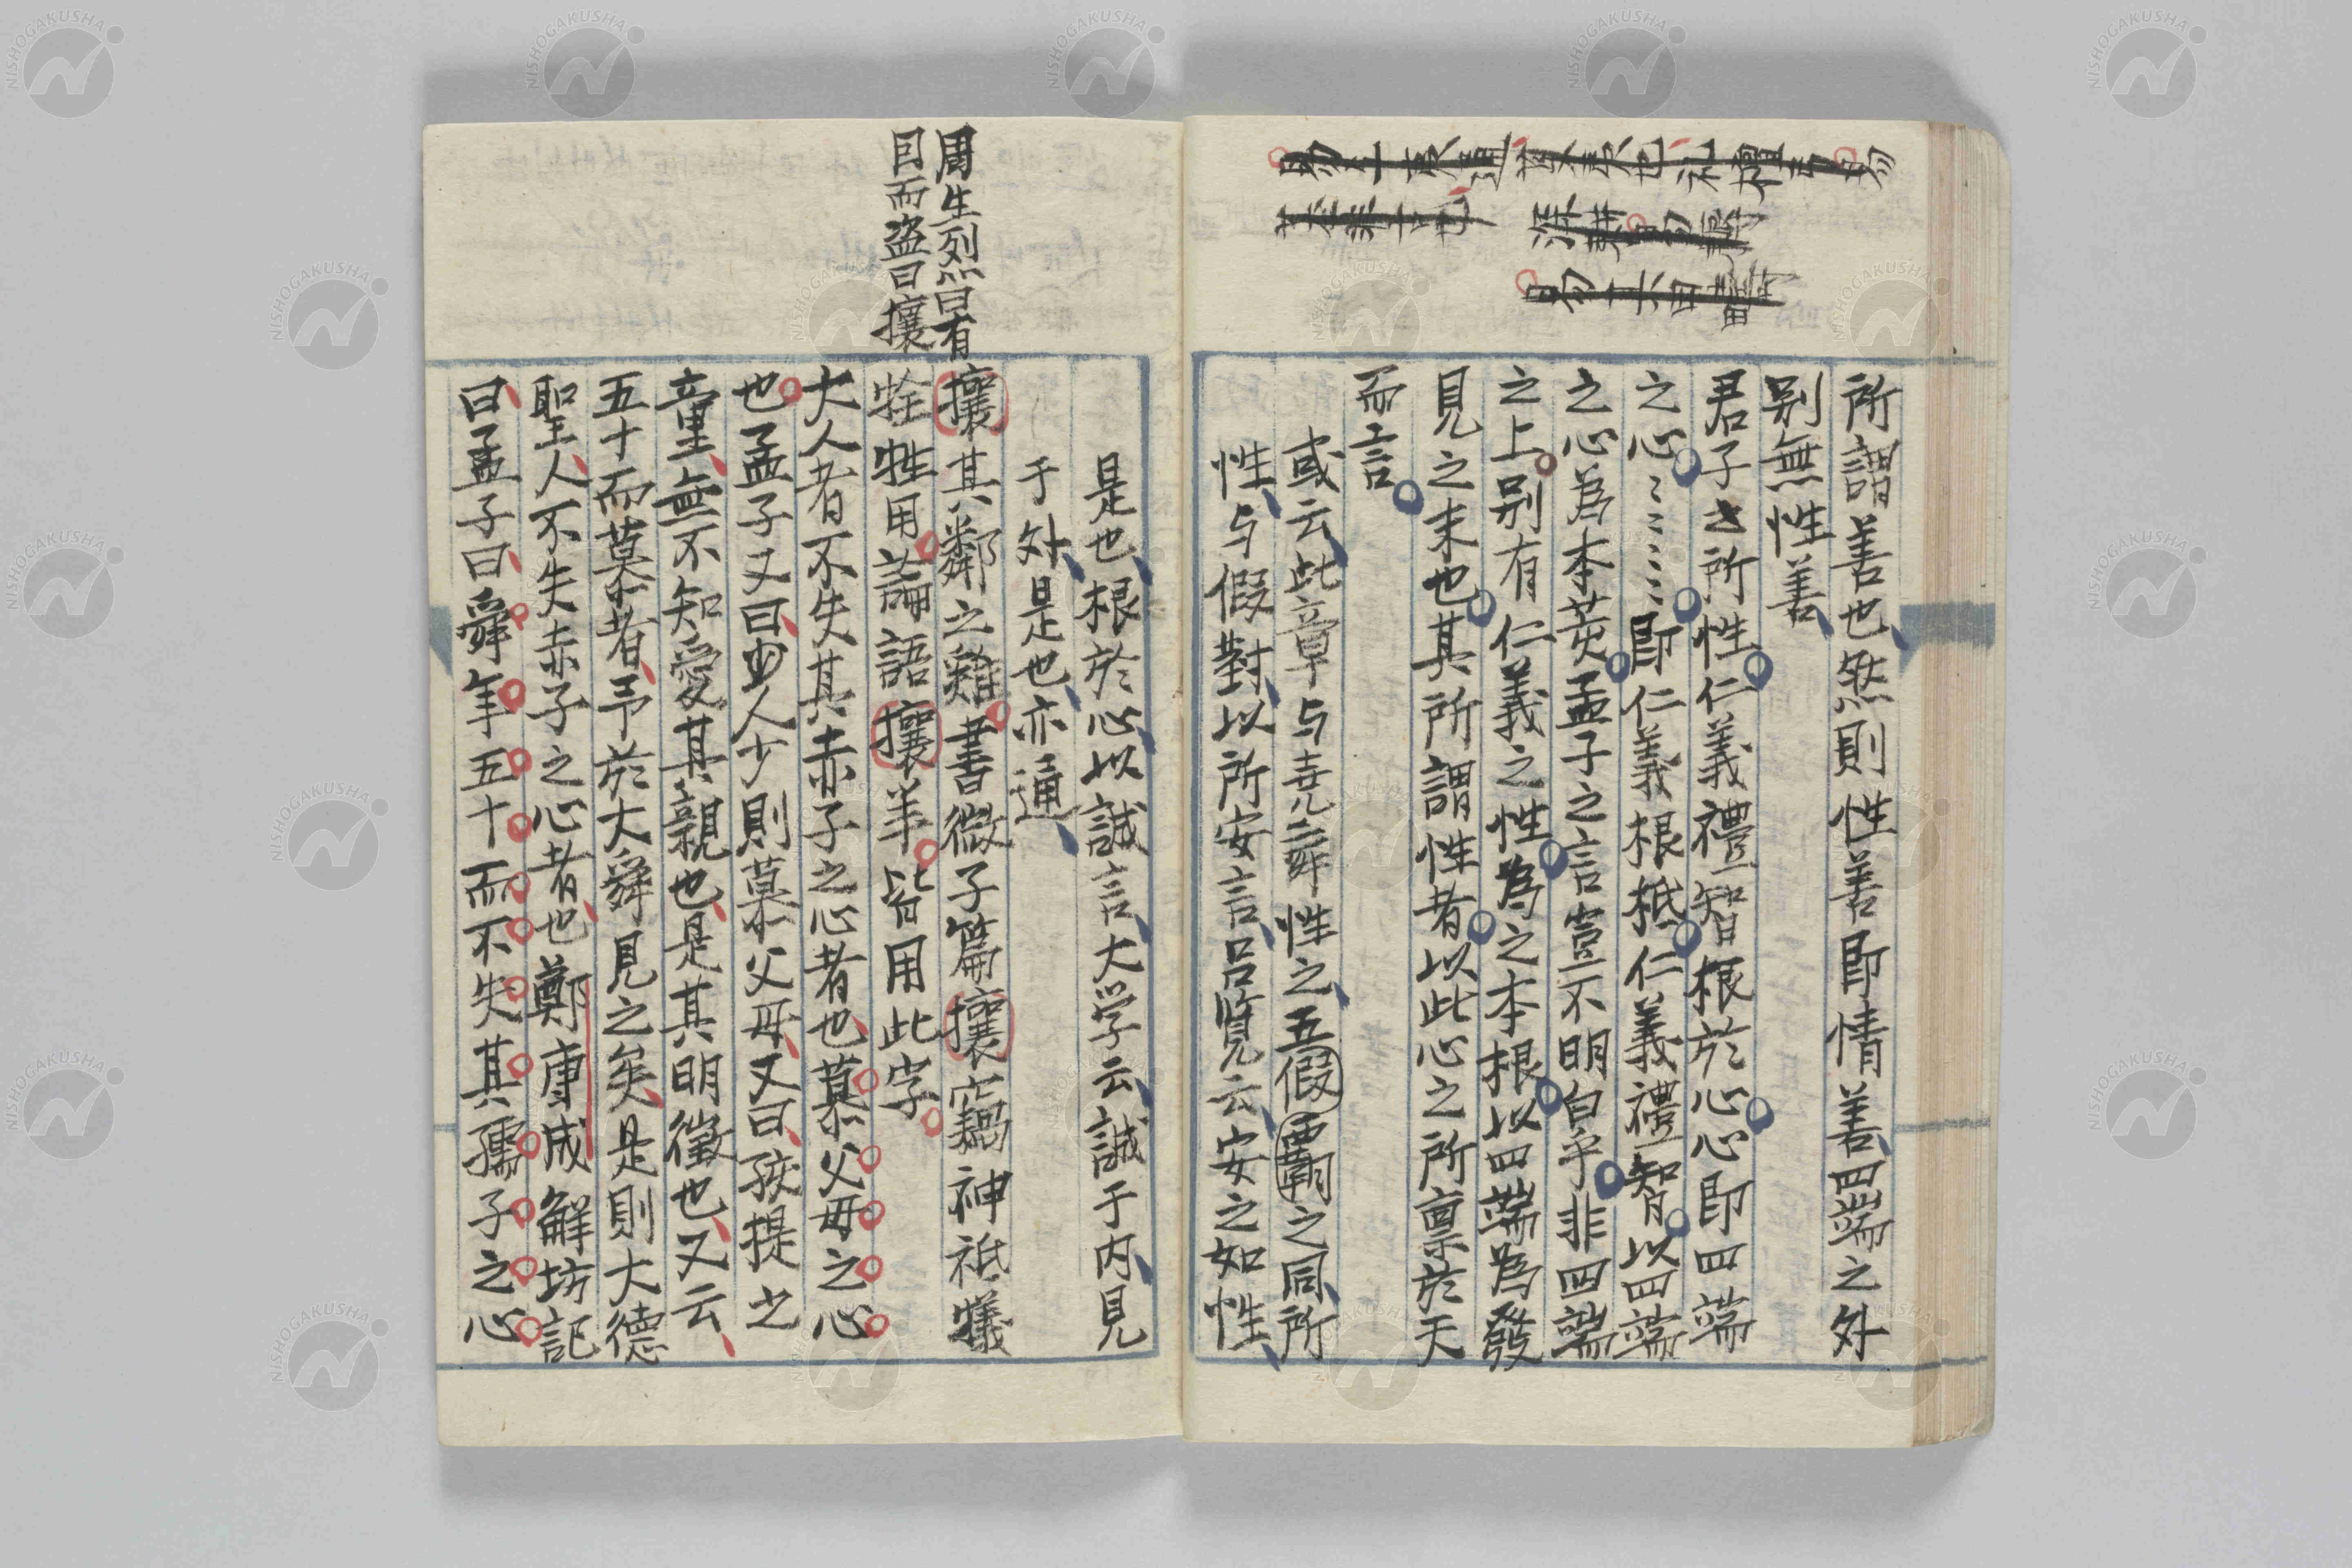 所謂善也然則性善即情善四端之外
別無性善
君子之所性仁義禮智根於心心即四端
之心ミミミミ即仁義根柢仁義禮智以四端
之心為本茨孟子之言豈不明白乎非四端
之上別有仁義之性為之本根以四端為發
見之末也其所謂性者以此心之所稟於天
而言
或云此章与尭舜性之五假覇之同所
性与假對以所安言呂覧云安之如性
周生烈曰有
因而盗曰攘
是也根於心以誠言大学云誠于内見
于外是也亦通
攘其鄰之雞書微子篇攘竊神祗犧
牷牲用論語攘羊皆用此字
大人者不失其赤子之心者也慕父母之心
也孟子又曰人少則慕父母又曰孩提之
童無不知愛其親也是其明徴也又云
五十而慕者予於大舜見之矣是則大德
聖人不失赤子之心者也鄭康成觧坊記
曰孟子曰舜年五十而不失其孺子之心